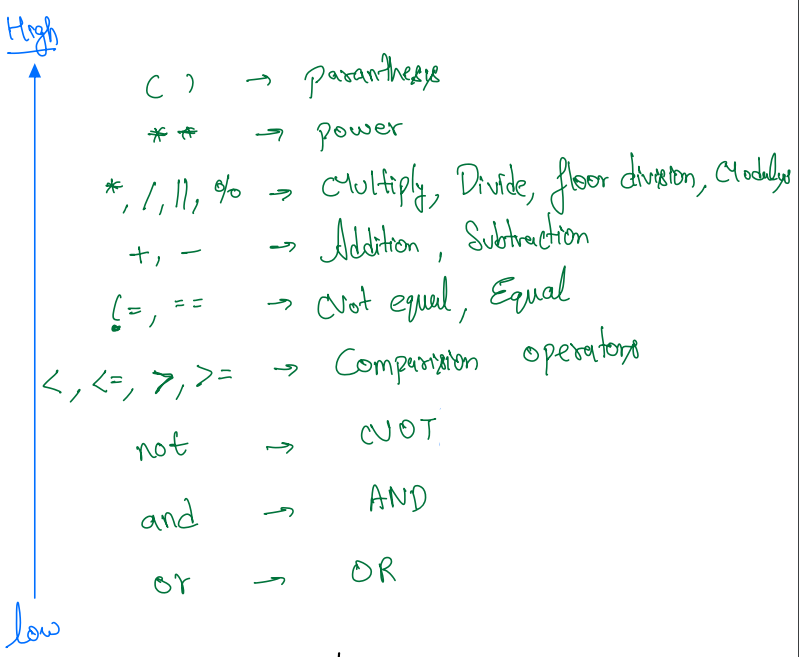 High
( ) → paranthesys
** → power
*, /, //, % → Multiply, Divide, floor division, Modulys
+, - → Addition, Subtraction
!=, == → Not equal, Equal
<, <=, >, >= → Comparision operators
not → NOT
and → AND
or → OR
low